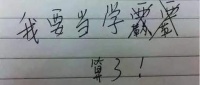 我要当学霸
算了！